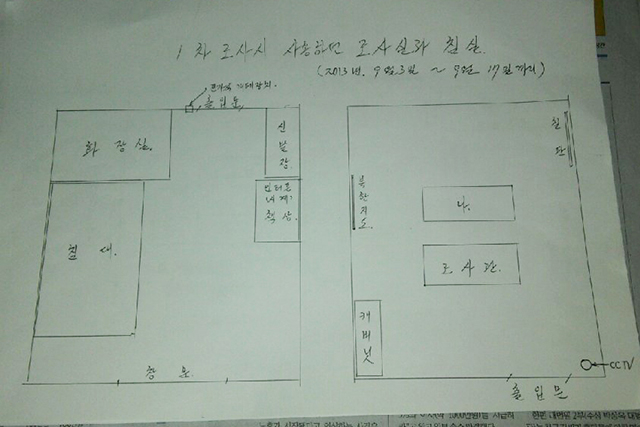 1차 조사시 사용하던 조사실과 침실
(2013년. 9월3일 ~ 9월 17일 까지)
출입문
화장실.
신발장
침대.
책상.
창문
칠판
북한지도.
나.
조사관.
캐비넷
CCTV
출입문